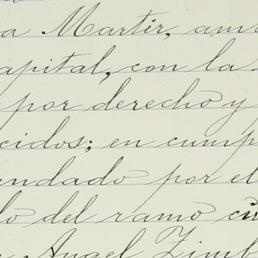 a Martir, am
apital, con la
por derecho y
cidos; en cump
ndado por el
lo del ramo ci
Angel Zimb